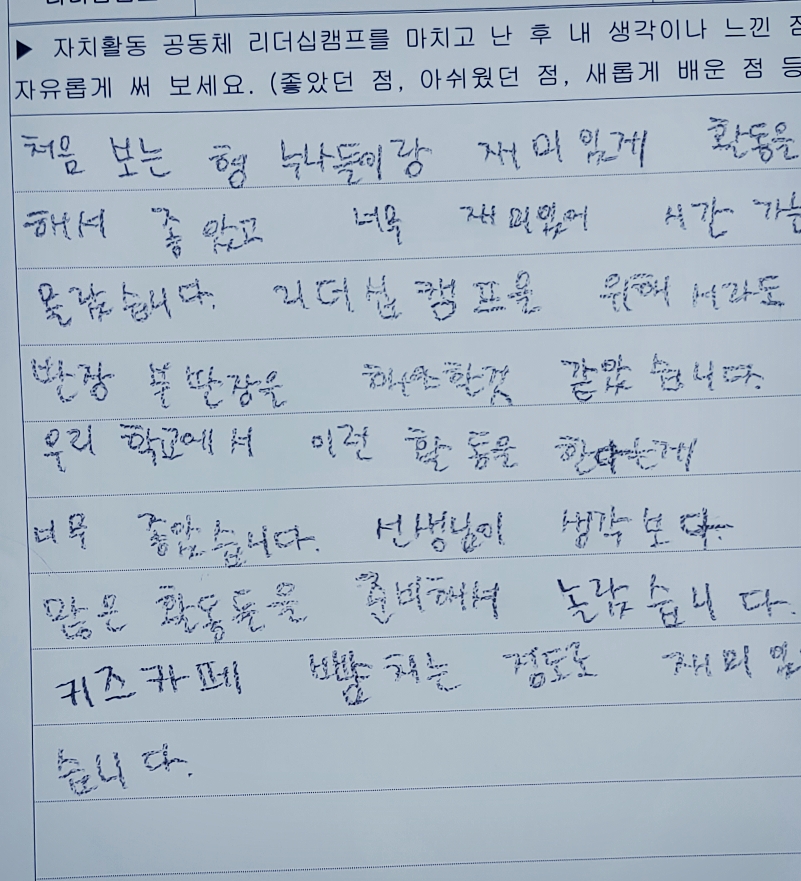 ▶ 자치활동 공동체 리더십캠프를 마치고 난 후 내 생각이나 느낀 점
자유롭게 써 보세요. (좋았던 점, 아쉬웠던 점, 새롭게 배운 점 등
처음 보는 형 누나들이랑 재미있게 활동을
해서 좋았고 너무 재미있어 시간 가는
몰랐습니다. 리더십 캠프을 위해서라도
반장 부반장을 해야할것 같았습니다.
우리 학교에서 이런 활동을 한다는게
너무 좋았습니다. 선생님이 생각보다
많은 활동들을 준비해셔 놀랐습니다.
키즈카페 뺨치는 정도로 재미있
습니다.